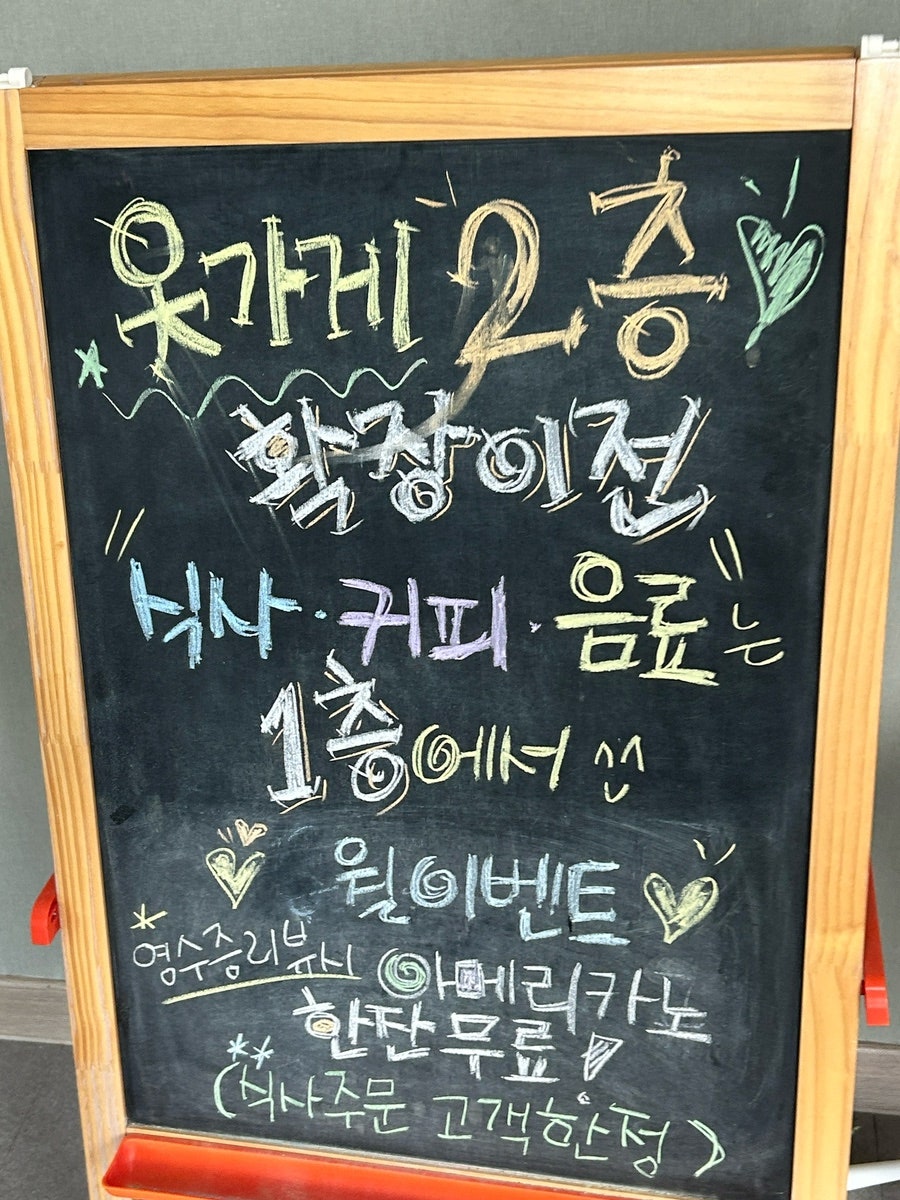 옷가게 2층
확장이전
"식사·커피·음료"는
1층에서
월이벤트
*영수증리뷰시 아메리카노
한잔 무료!
**(식사주문 고객한정)